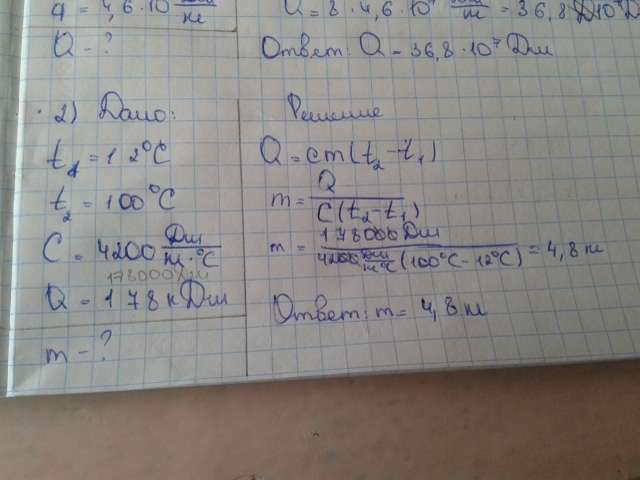 q = 4,6·10
Q = 8·4,6·10⁷ = 36,8
Q - ?
Ответ: Q = 36,8·10⁷ Дж
2) Дано:
t₁ = 12°C
t₂ = 100°C
C = 4200 Дж/кг·°C
178000 Дж
Q = 178 кДж
m - ?
Решение
Q = cm(t₂ - t₁)
m = Q/C(t₂ - t₁)
m = 178000 Дж/4200 Дж/кг°C (100°C - 12°C) = 4,8 кг
Ответ: m = 4,8 кг